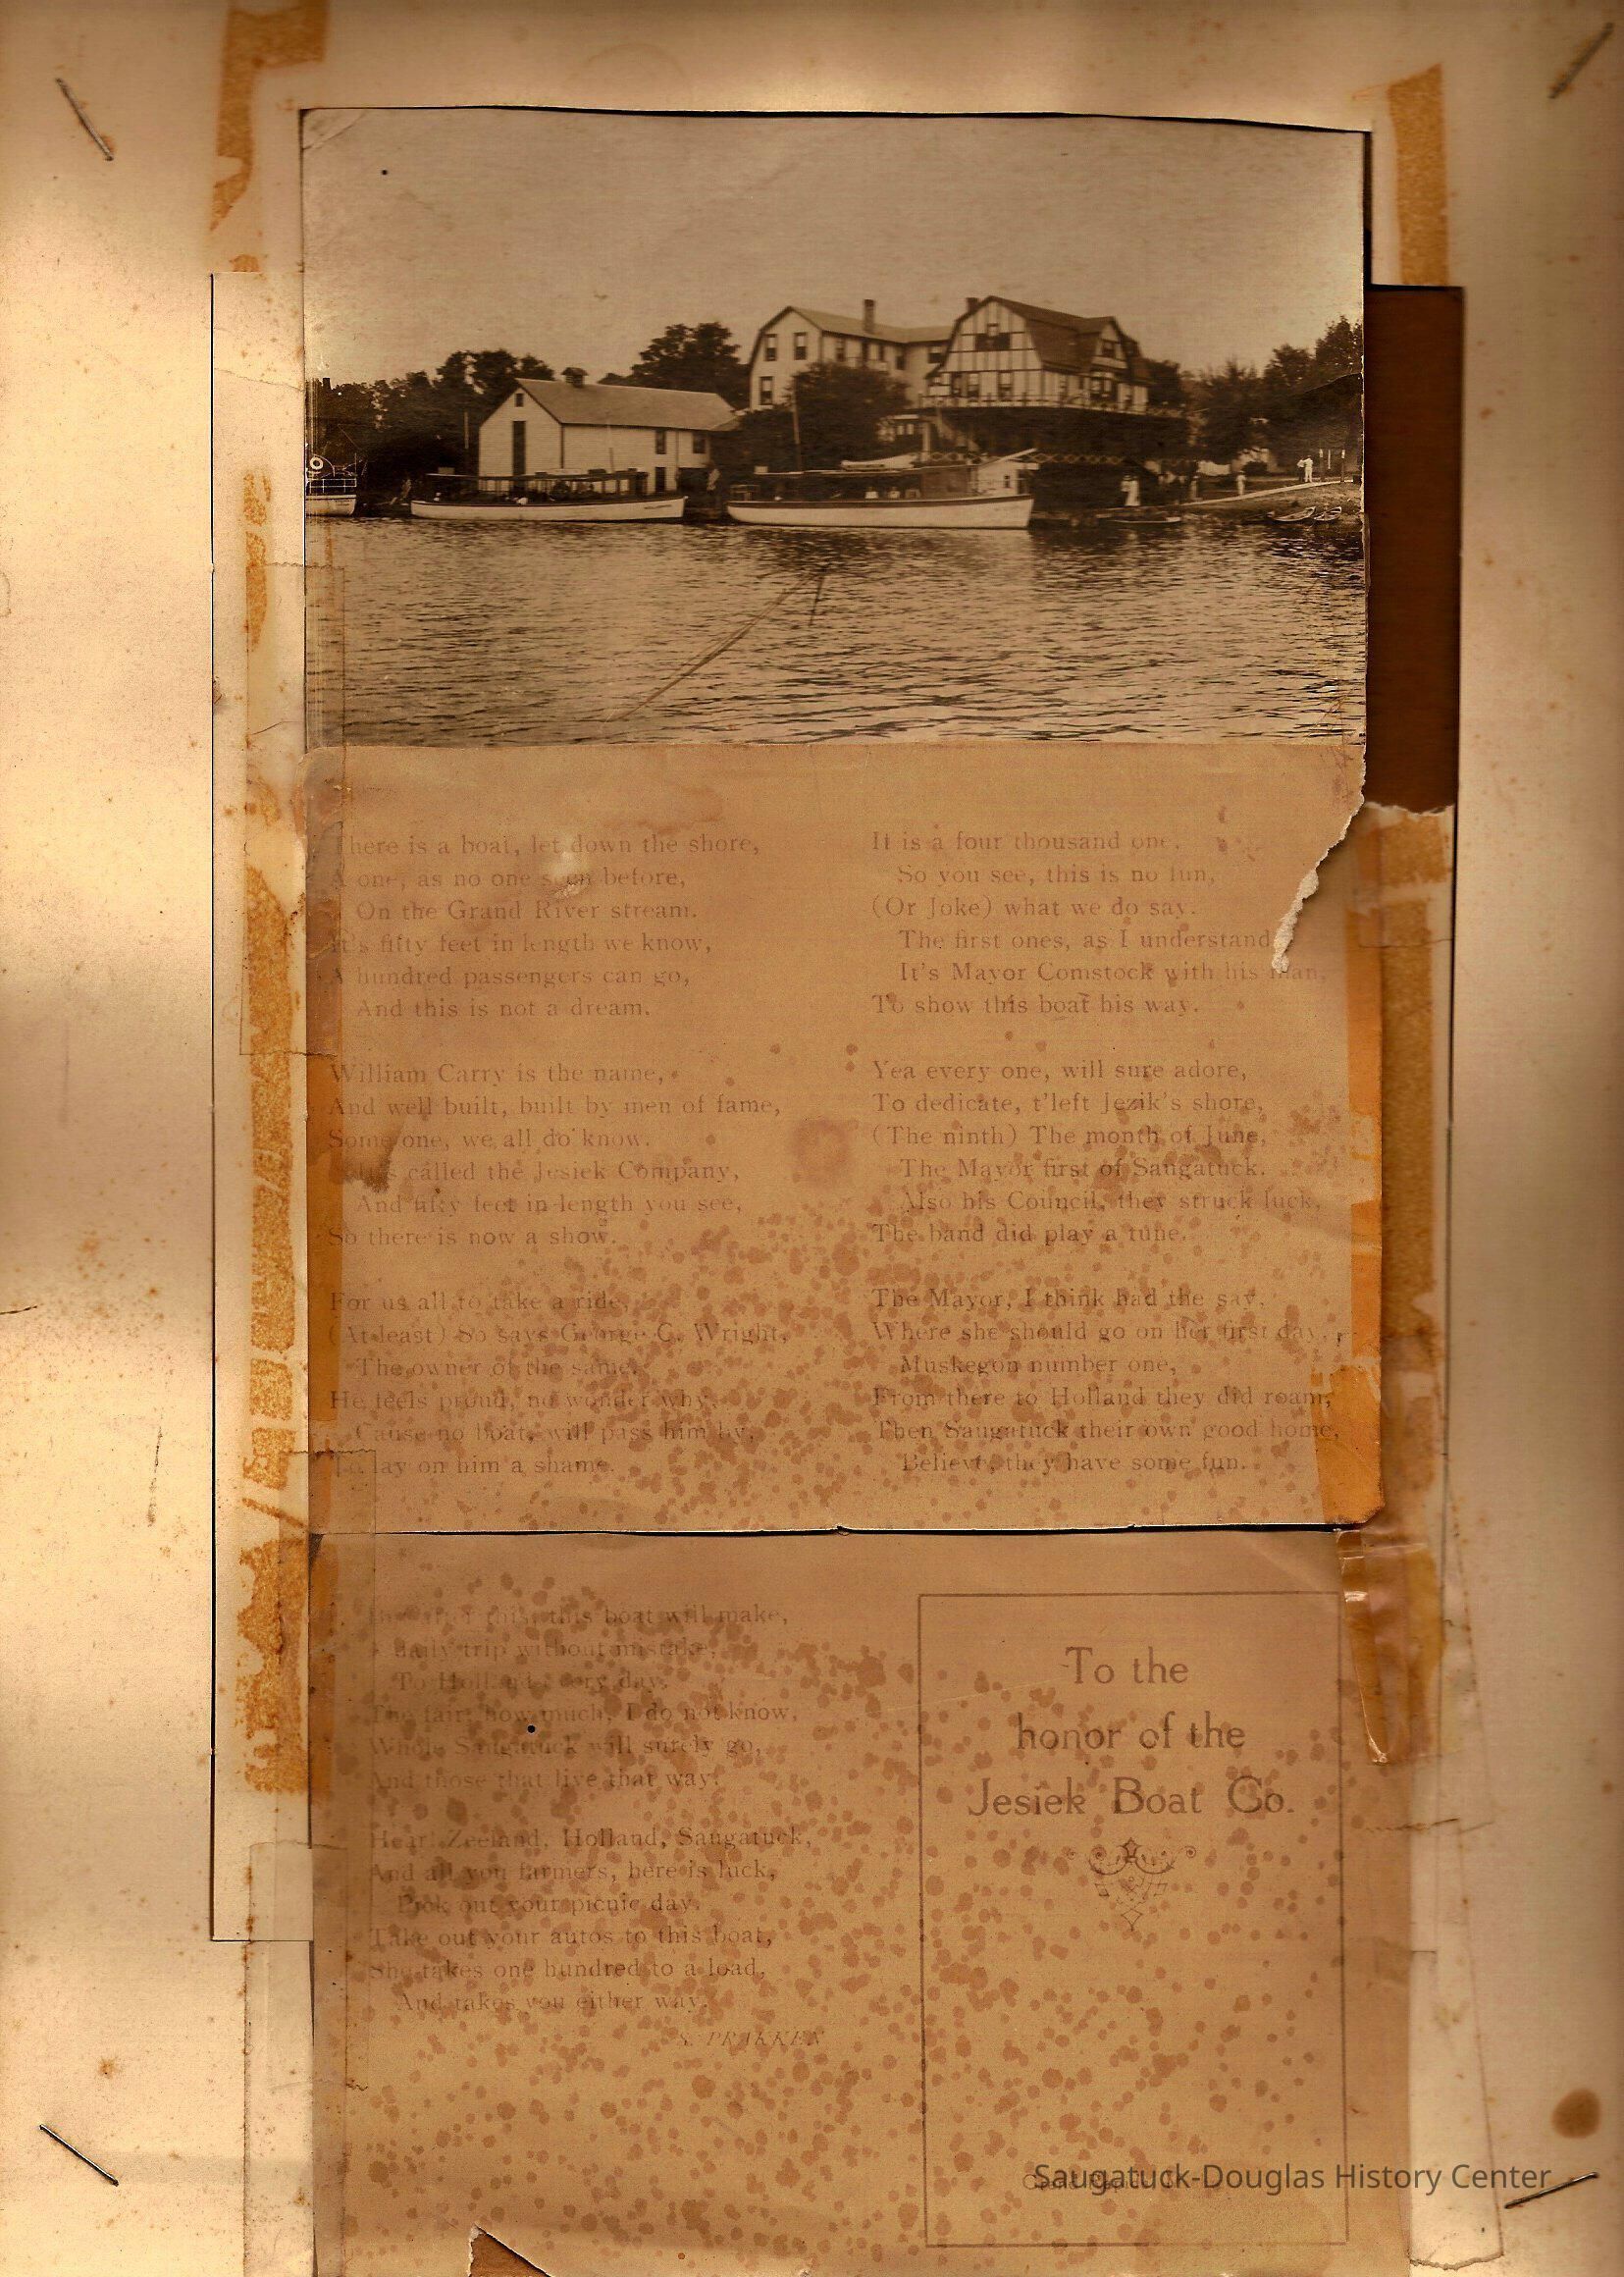 There is a boat, let down the shore,
A one, as no one seen before,
On the Grand River stream.
It's fifty feet in length we know,
A hundred passengers can go,
And this is not a dream.
William Carry is the name,
And well built, built by men of fame,
Some one, we all do know.
It's called the Jesiek Company,
And fifty feet in length you see,
So there is now a show.
For us all to take a ride,
(At least) So says George C. Wright,
The owner of the same.
He feels proud, no wonder why,
Cause no boat, will pass him by,
To lay on him a shame.
It is a four thousand one,
So you see, this is no fun,
(Or Joke) what we do say.
The first ones, as I understand
It's Mayor Comstock with his man,
To show this boat his way.
Yea every one, will sure adore,
To dedicate, t'left Jezik's shore,
(The ninth) The month of June,
The Mayor first of Saugatuck.
Also his Council, they struck luck,
The band did play a tune.
The Mayor, I think had the say,
Where she should go on her first day,
Muskegon number one,
From there to Holland they did roam,
Then Saugatuck their own good home,
Believe, they have some fun.
this, this boat will make,
A daily trip without mistake,
To Holland every day.
The fair, how much, I do not know,
Whole Saugatuck will surely go,
And those that live that way.
Hear! Zeeland, Holland, Saugatuck,
And all you farmers, here is luck,
Pick out your picnic day.
Take out your autos to this boat,
She takes one hundred to a load,
And takes you either way.
S. PRAKKEN
To the
honor of the
Jesiek Boat Co.
Saugatuck-Douglas History Center